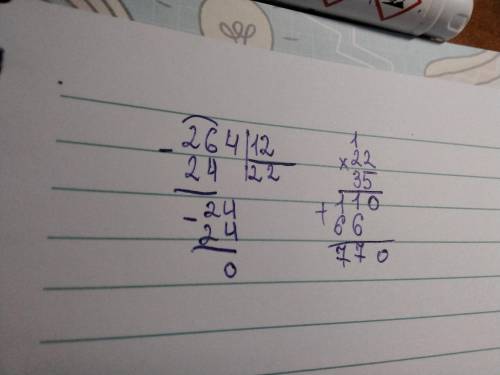 - 264 | 12
24 | 22
- 24
24
0
1
× 22
35
+ 110
66
770